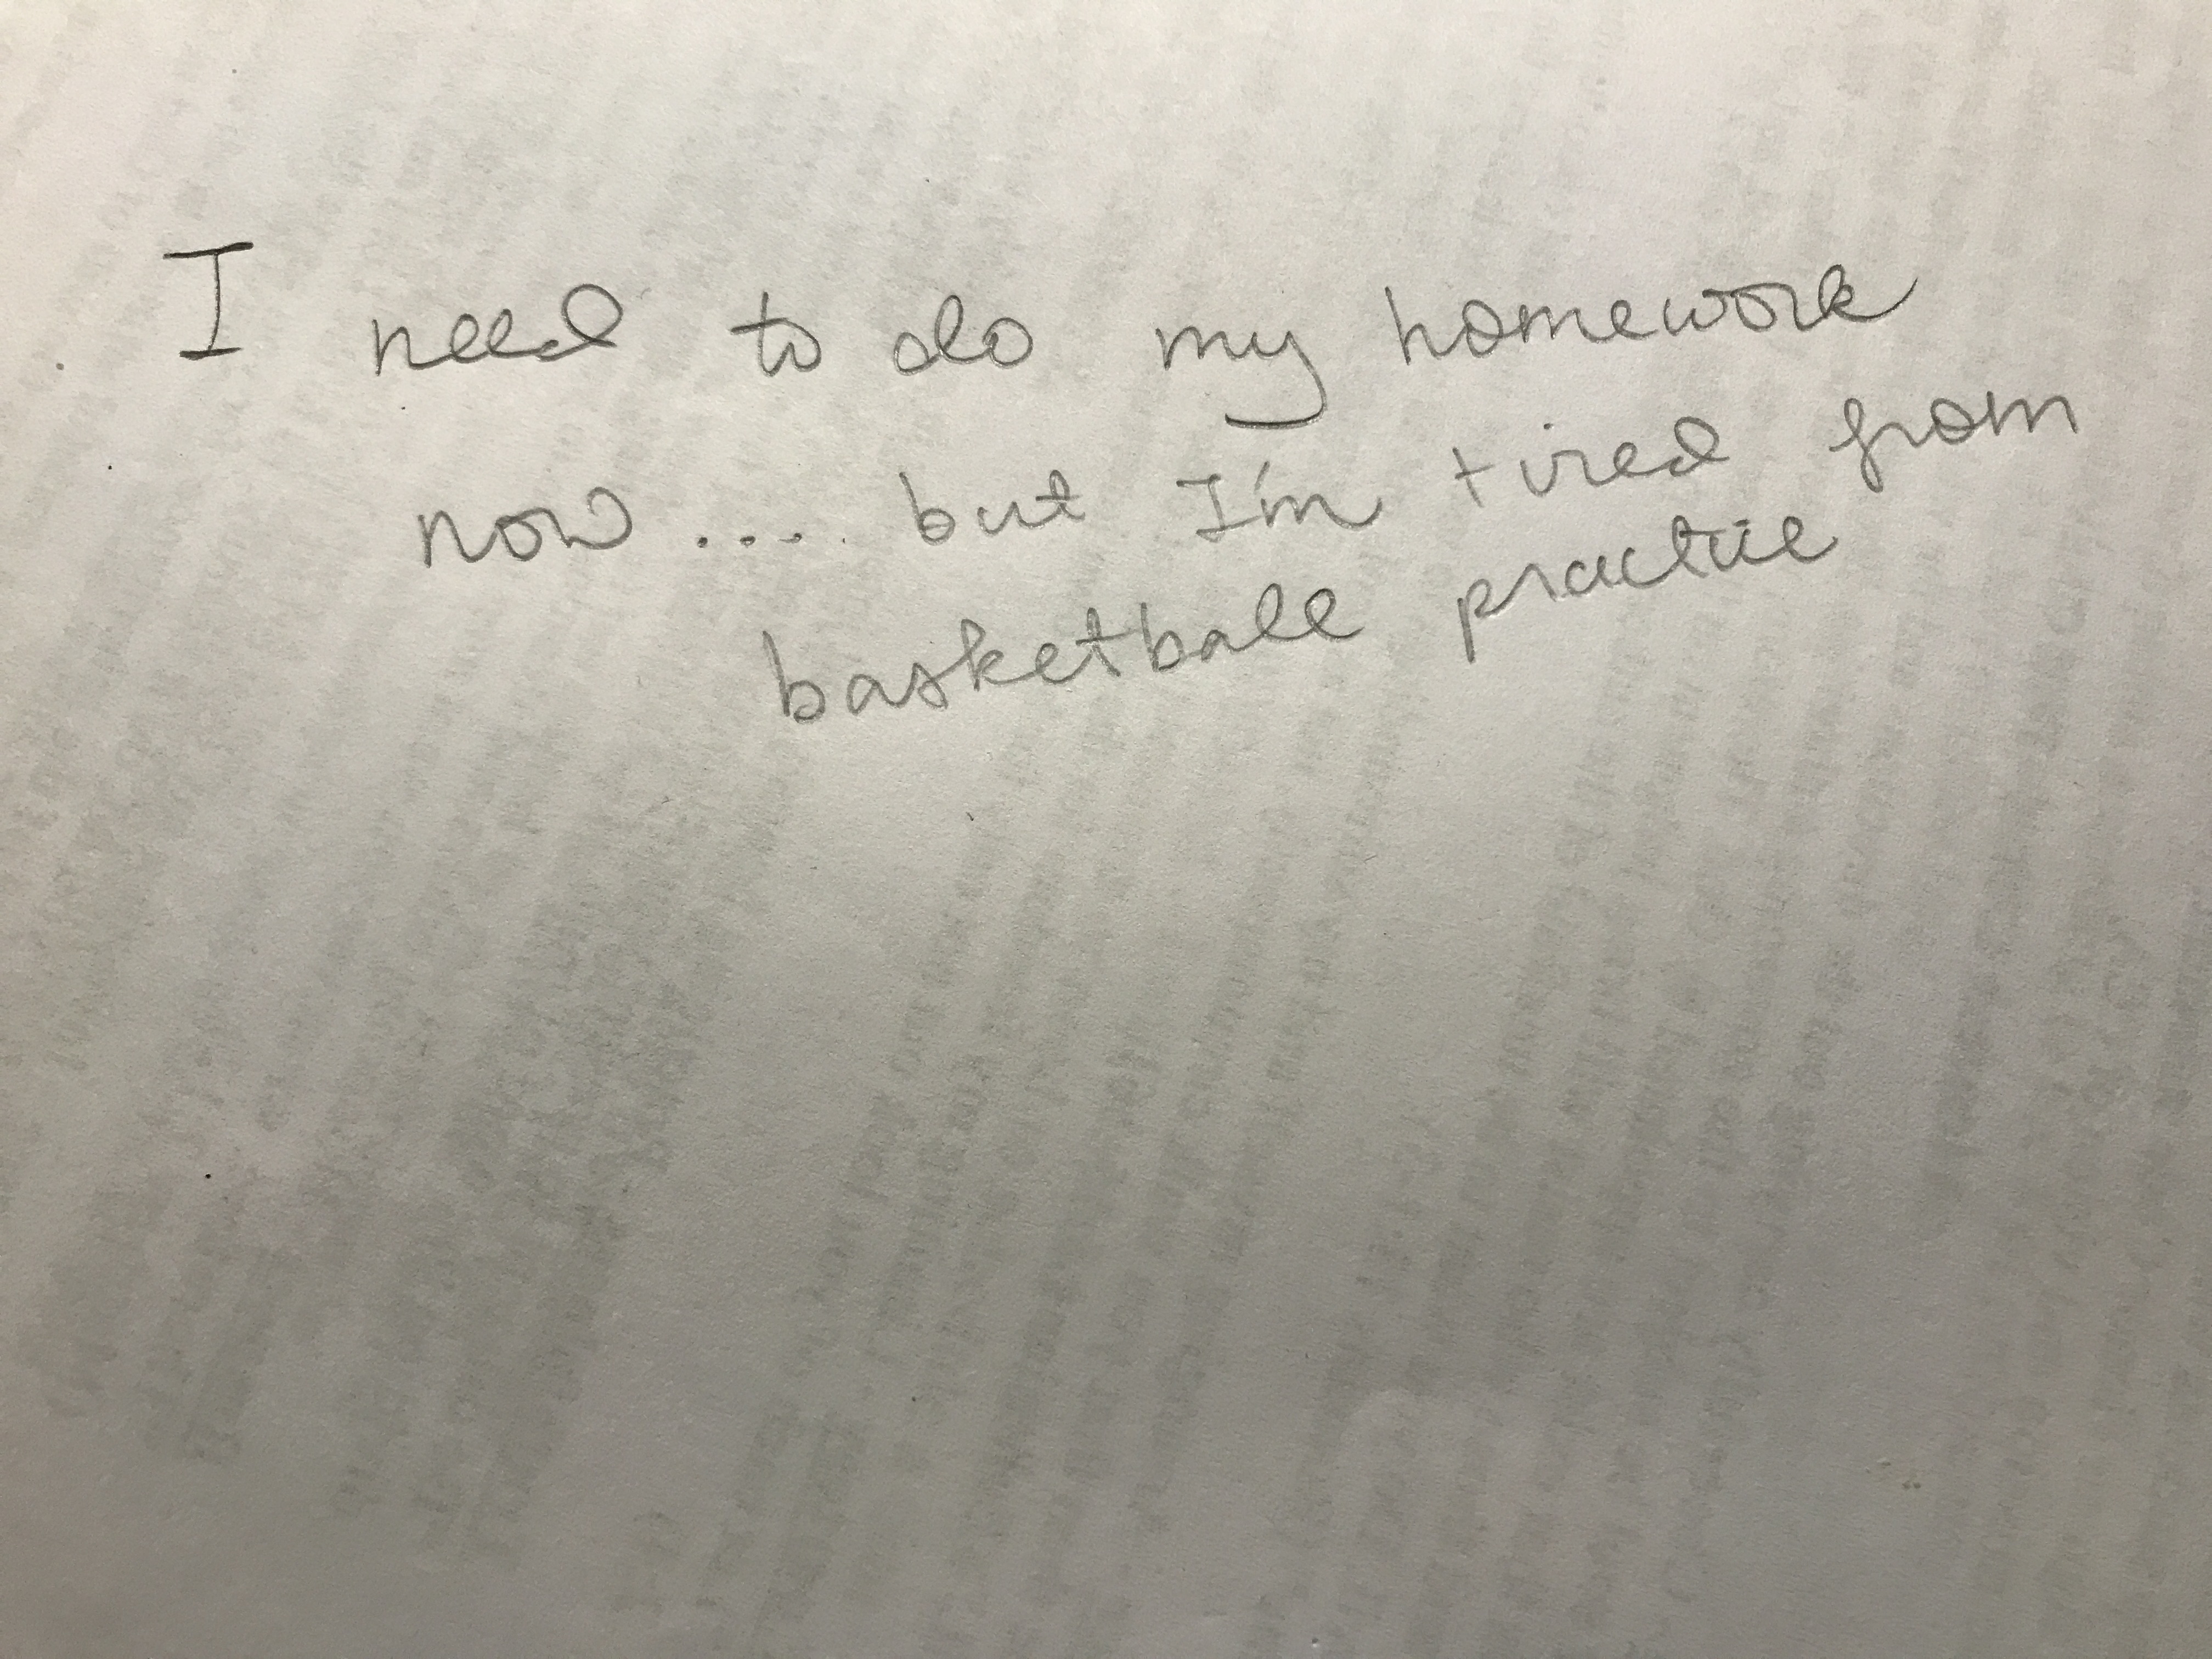 I need to do my homework
now .... but I'm tired from
basketball practice